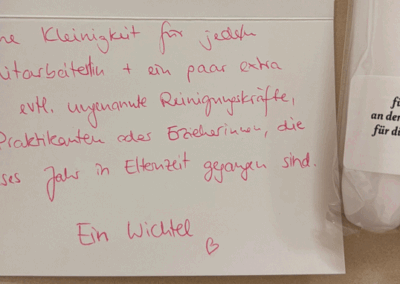 ne Kleinigkeit für jeden
itarbeiterIn + ein paar extra
evtl. ungenannte Reinigungskräfte,
Praktikanten oder Erzieherinnen, die
ses Jahr in Elternzeit gegangen sind.
Ein Wichtel
fü
an der
für di